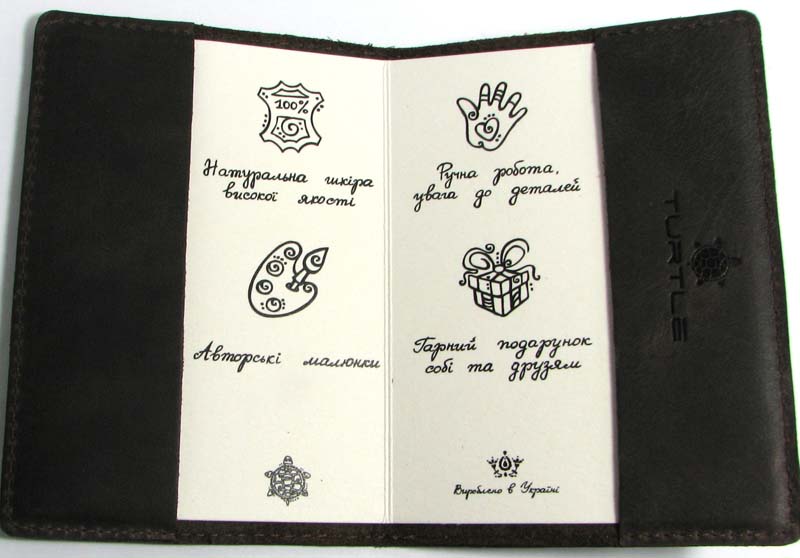 100%
Натуральна шкіра
високої якості
Авторські малюнки
Ручна робота,
увага до деталей
Гарний подарунок
собі та друзям
Вироблено в Україні
TURTLE